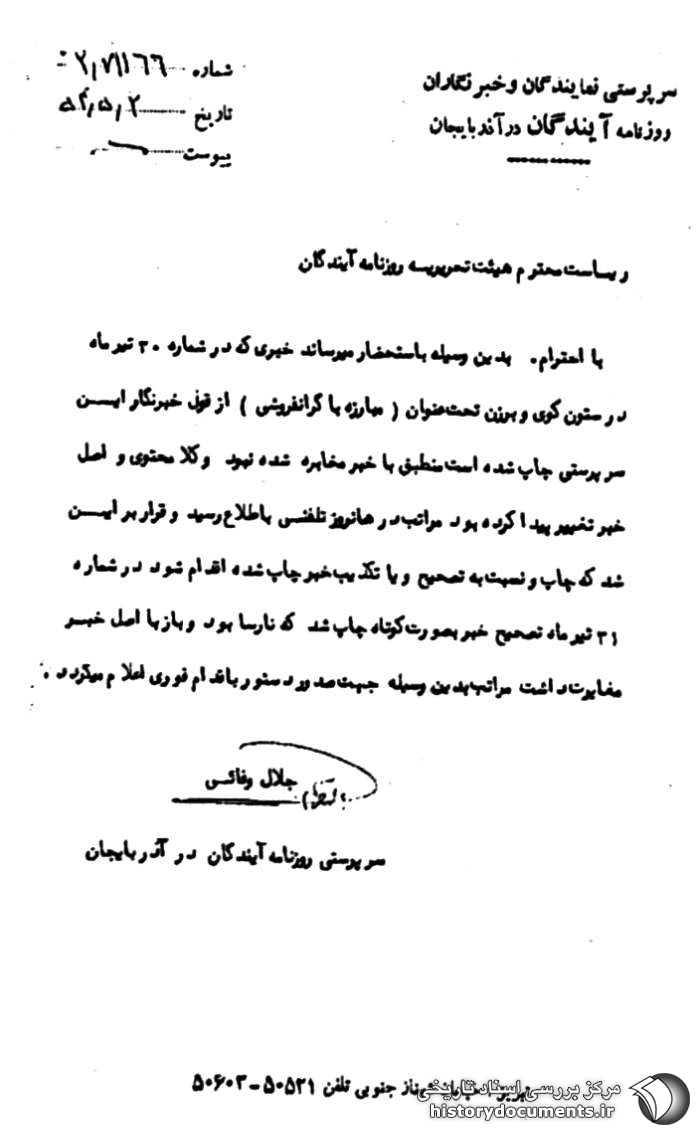 سرپرستی نمایندگان و خبرنگاران
روزنامه آیندگان در آذربایجان
شماره
تاریخ ۵۴٫۵٫۲
پیوست
ریاست محترم هیئت تحریریه روزنامه آیندگان
با احترام. بدین وسیله باستحضار میرساند خبری که در شماره ۳۰ تیر ماه
در ستون کوی و برزن تحت عنوان ( مبارزه با گرانفروشی ) از قول خبرنگار ایـــن
سرپرستی چاپ شده است منطبق با خبر مخابره شده نبود وکلا محتوی و اصل
خبر تغییر پیدا کرده بود مراتب در همانروز تلفنـی باطلاع رسید و قرار بر ایـــن
شد که چاپ و نسبت به تصحیح و یا تکذیب خبر چاپ شده اقدام شود در شماره
۳۱ تیر ماه تصحیح خبر بصورت کوتاه چاپ شد که نارسا بود و باز با اصل خبـــر
مغایرت داشت مراتب بدین وسیله جهت صدور دستور باقدام فوری اعلام میگردد.
جلال وفائـی
سرپرستی روزنامه آیندگان در آذربایجان
تبریز خیابان شهناز جنوبی تلفن ۵۰۵۳۱ - ۵۰۶۰۳
مرکز بررسی اسناد تاریخی
historydocuments.ir